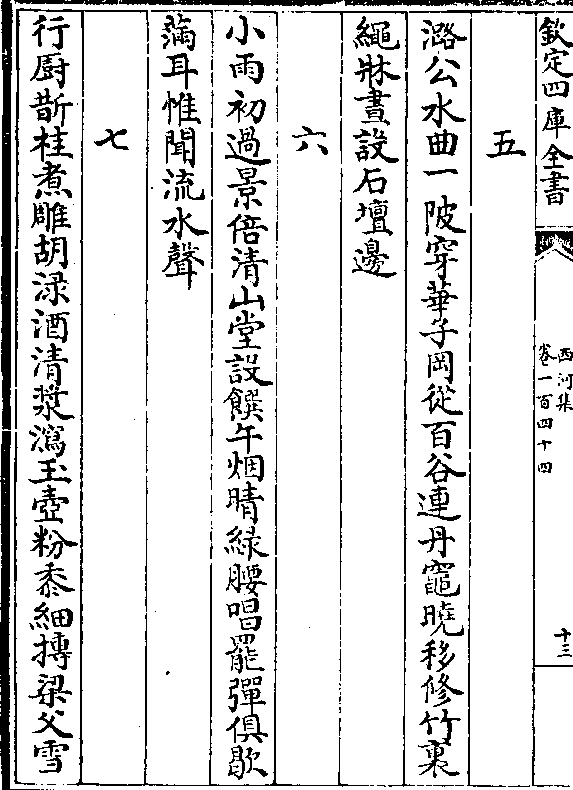 欽定四庫全書
西河集
卷一百四十四
十三
五
潞公水曲一陂穿華子岡從百谷連丹竈曉移修竹裏
繩牀晝設石壇邊
六
小雨初過景倍清山堂設饌午烟晴緑腰唱罷彈俱歇
滿耳惟聞流水聲
七
行厨斮桂煮雕胡渌酒清漿瀉玉壺粉黍細摶梁父雪